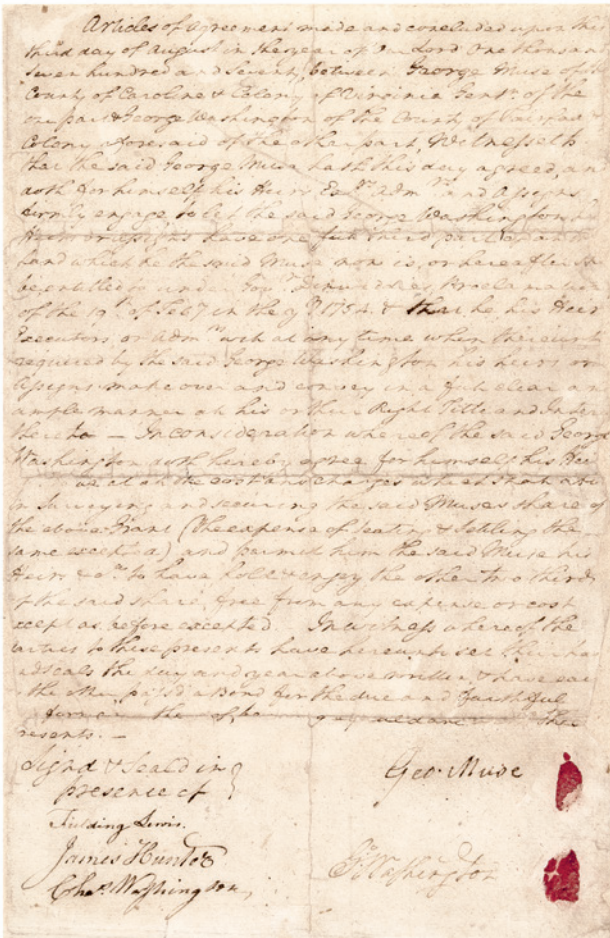 Articles of Agreement made and concluded upon this
third day of August in the year of Our Lord One thousand
Seven hundred and Seventy, between George Muse of the
County of Caroline & Colony of Virginia Gentn. of the
one part & George Washington of the County of Fairfax
Colony aforesaid of the other part, Witnesseth
that the said George Muse hath this day agreed, an
doth for himself his Heirs Exrs. Admrs. and Assigns
firmly engage to let the said George Washington, his
Heirs or assigns have one full third part of
land which he the said Muse now is, or hereafter
be entitled to under Govr. Dinwiddies, Proclamation
of the 19th. of Feby. in the yr. 1754. & that he, his Heirs
Executors or Admrs. will at any time when thereunto
required by the said George Washington his heirs or
Assigns make over and convey in a full clear an
ample manner all his or their Right Title and Inter
thereto — In consideration whereof the said George
Washington doth hereby agree for himself his Hei
at all the cost and charges which shall ari
in Surveying and securing the said Muses share of
the above Grant (the expense of seating & settling the
same excepted) and permit him the said Muse his
Heirs &ca. to have hold & enjoy the other two thirds
of the said share, free from any expense or cost
xcept as before excepted. In witness whereof the
arties to these presents have hereunto set their han
d seals the day and year above written, & have
the other passd a Bond for the due and faithful
the
resents. —
Signd & Seald in
presence of
Fielding Lewis.
James Hunter
Chas. Washington,
Geo. Muse
Go Washington